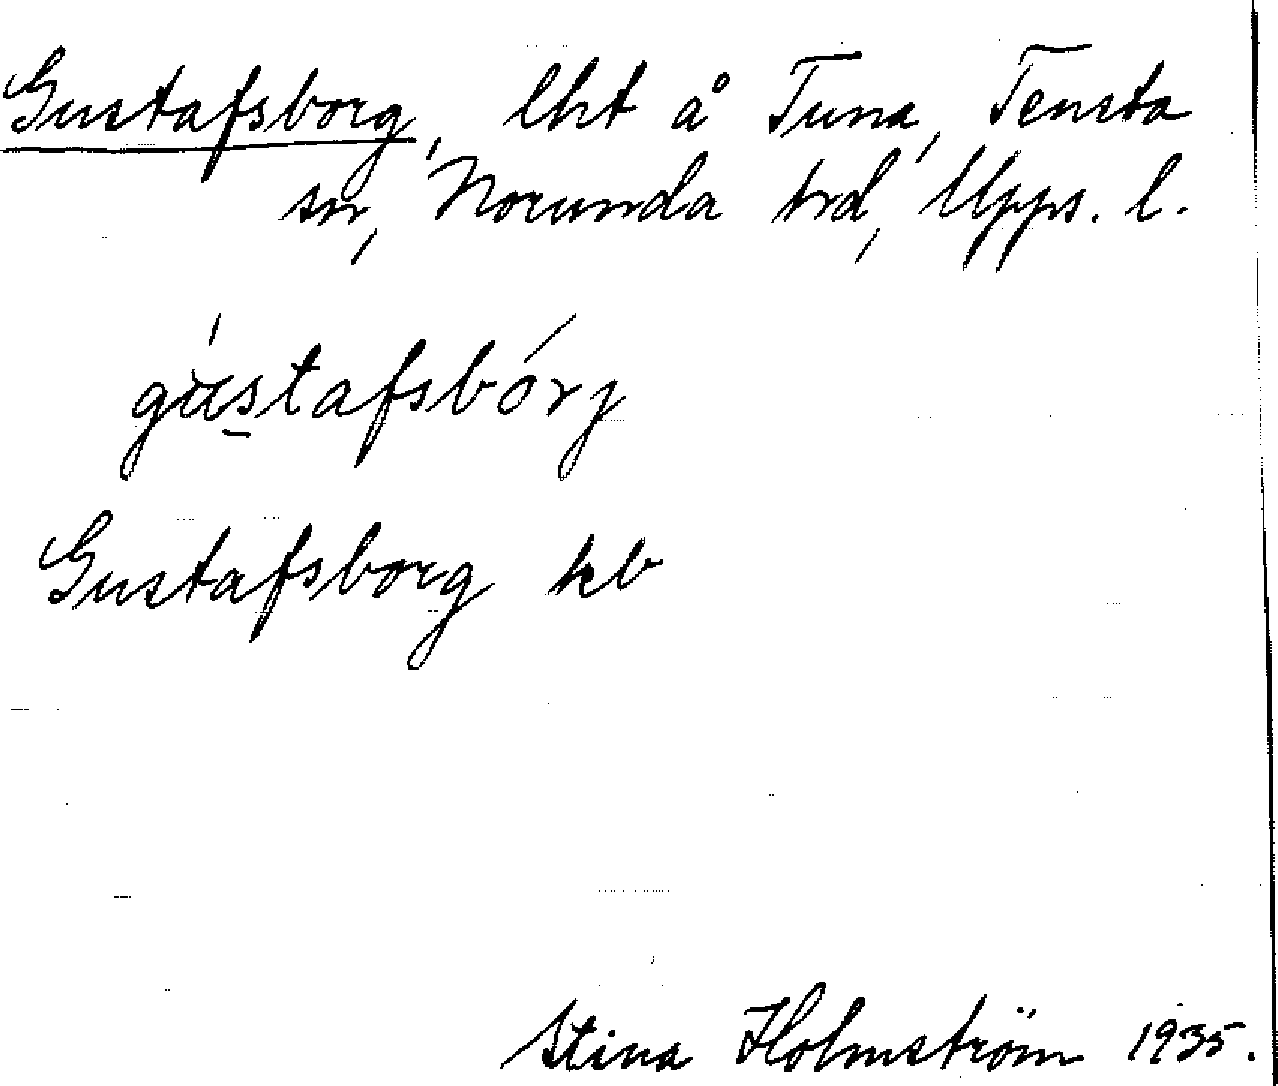 Gustafsborg, lht å Tuna, Tensta
sn, Norunda hrd, Upps. l.
gu̇́stafsbórj
Gustafsborg kb
Stina Holmström 1935.